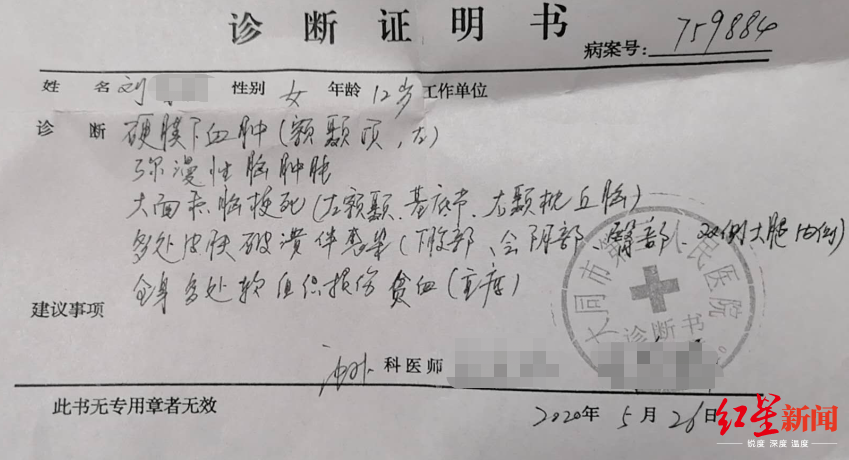 诊断证明书
病案号：759884
姓名 刘 性别 女 年龄 12岁 工作单位
诊断 硬膜下血肿（额颞顶，左）
弥漫性脑肿胀
大面积脑梗死（左额颞、基底节、右颞枕丘脑）
多处皮肤破溃伴感染（下腹部、会阴部、臀部、双侧大腿内侧）
全身多处软组织损伤 贫血（重度）
建议事项
大同市 人民医院
诊断书
科医师
此书无专用章者无效
2020年5月26日
红星新闻
锐度 深度 温度